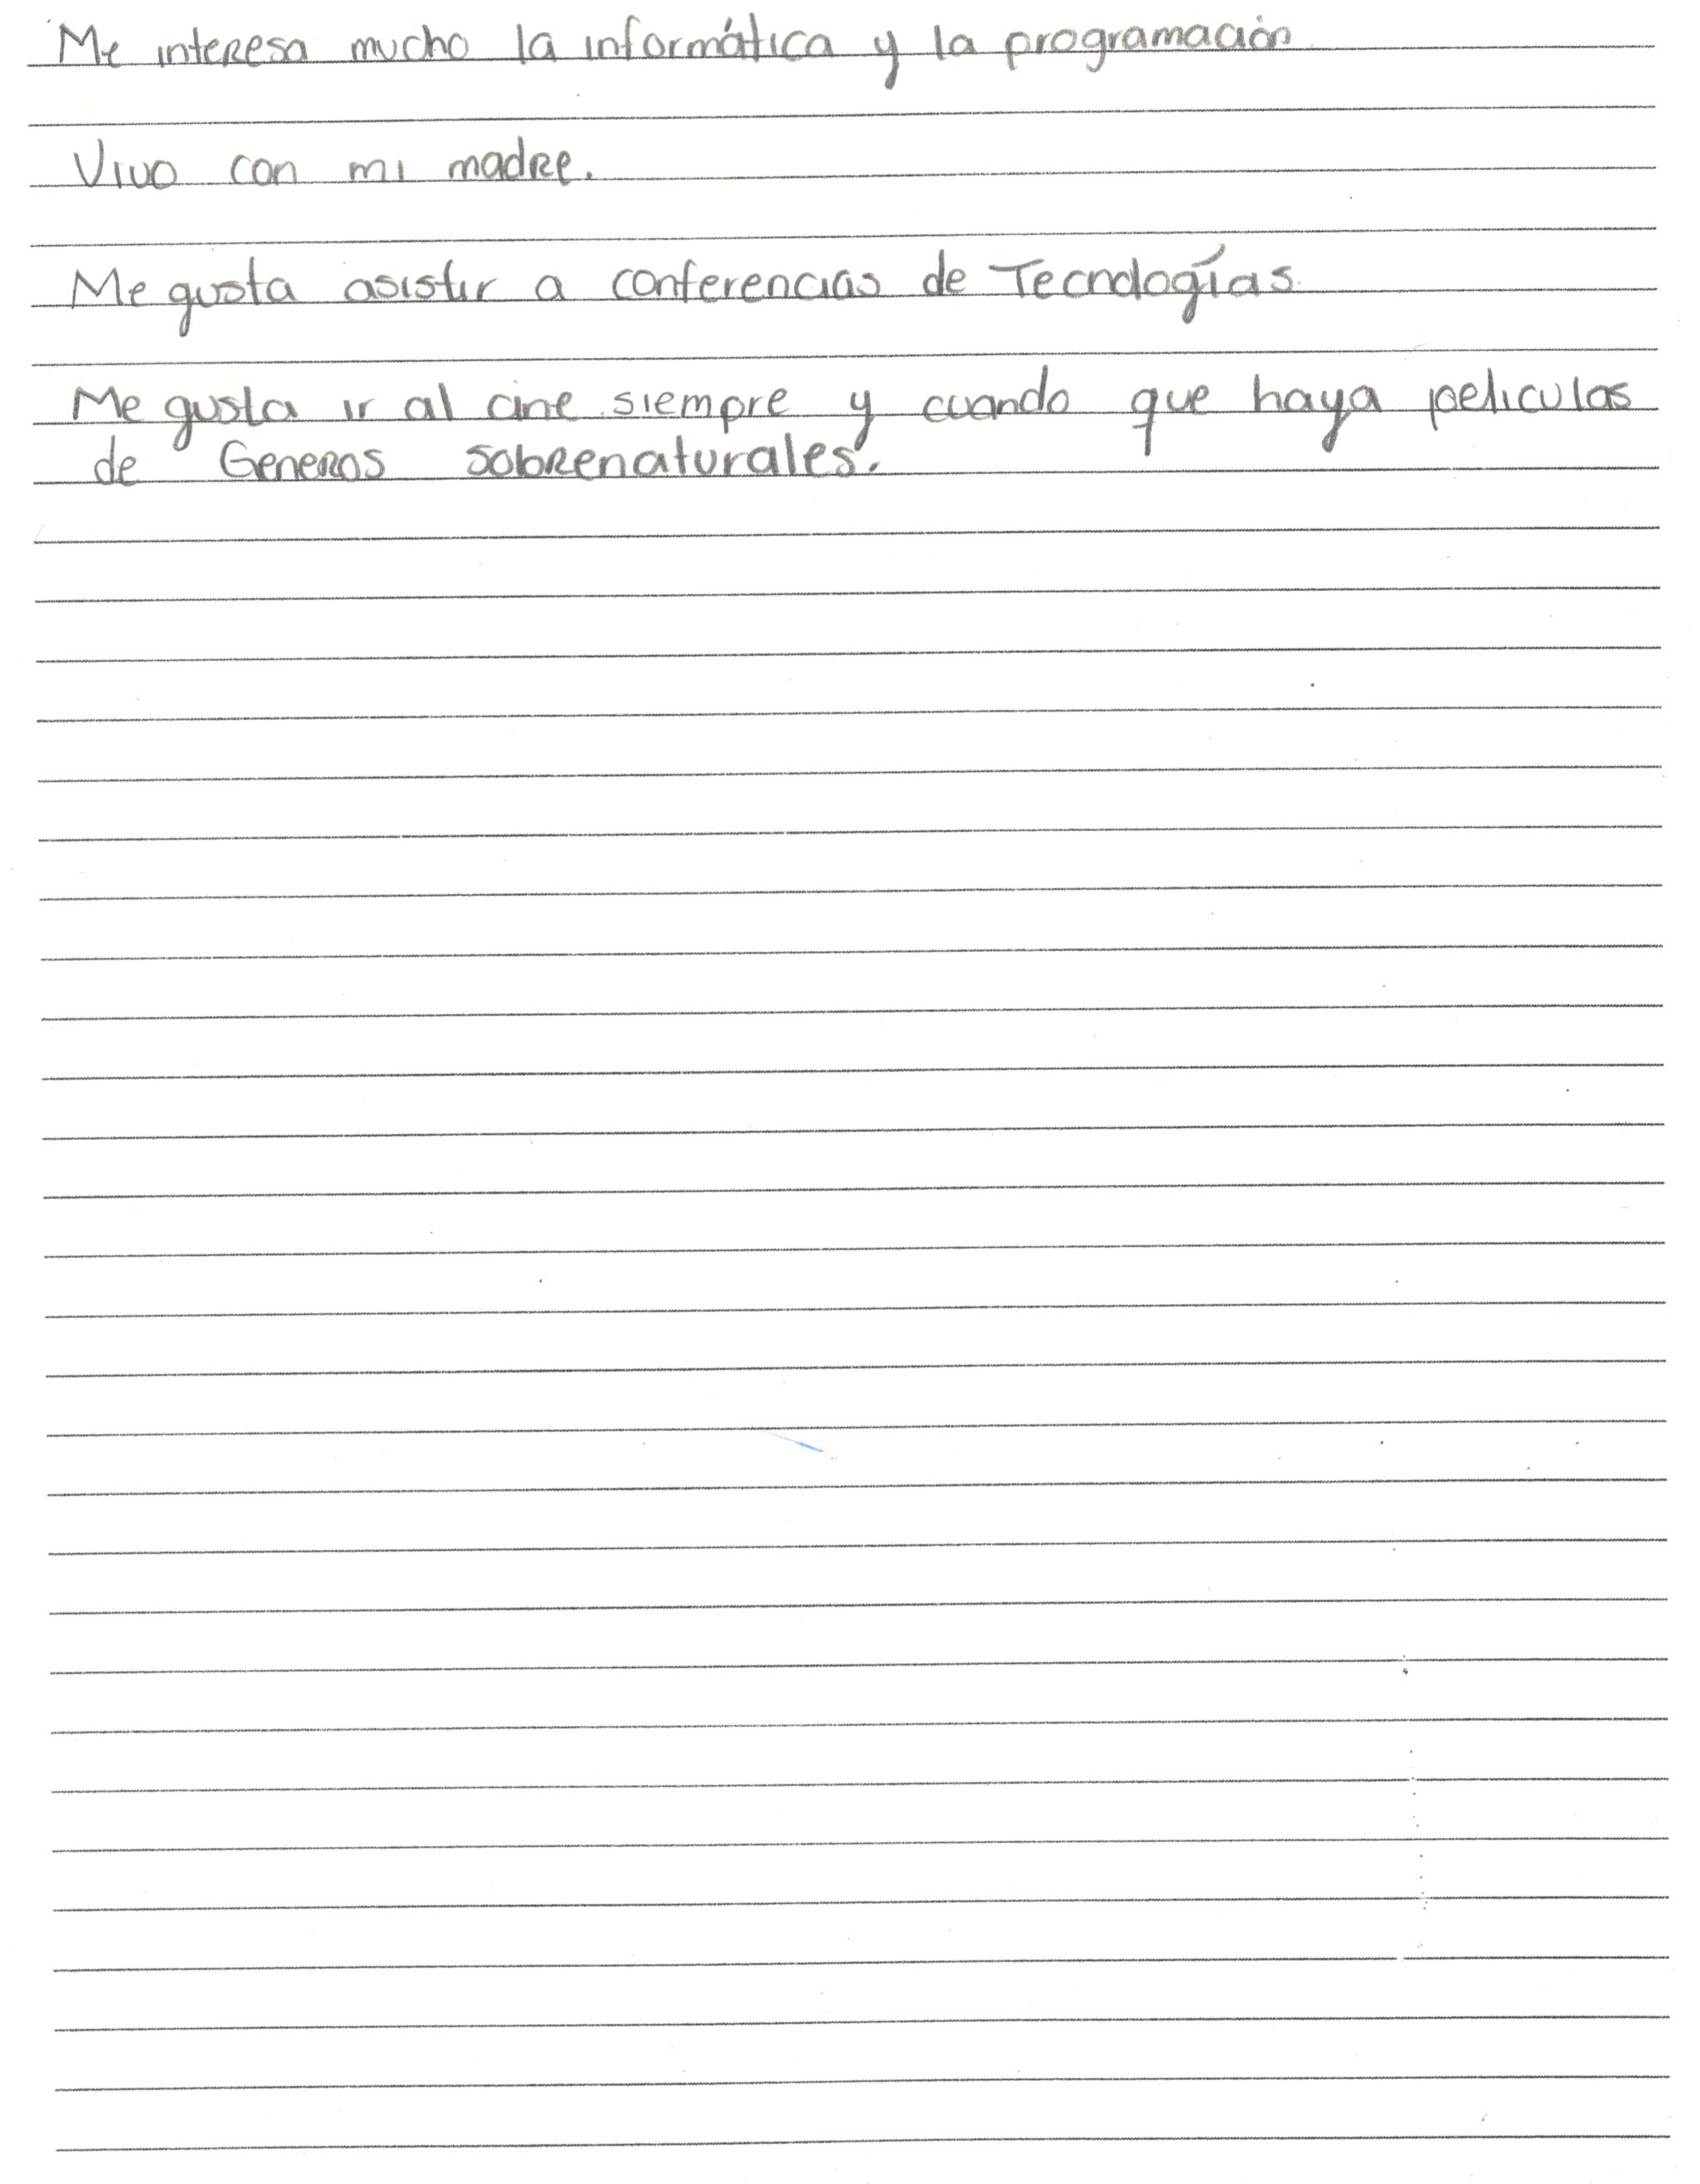 Me interesa mucho la informática y la programación.
Vivo con mi madre.
Me gusta asistir a conferencias de Tecnologías.
Me gusta ir al cine siempre y cuando que haya peliculas
de Generos sobrenaturales.